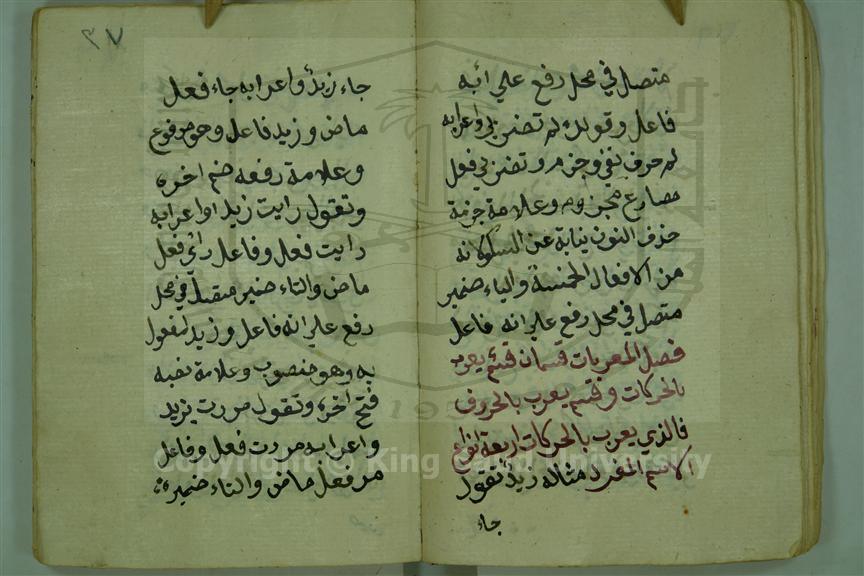 متصل في محل رفع علي انه
فاعل وقولك لم تضربي واعرابه
لم حرف نفي وجزم وتضربي فعل
مضارع مجزوم وعلامة جزمه
حذف النون نيابة عن السكون لانه
من الافعال الخمسة والياء ضمير
متصل في محل رفع علي انه فاعل
فصل المعربات قسمان قسم يعرب
بالحركات وقسم يعرب بالحروف
فالذي يعرب بالحركات اربعة انواع
الاسم المفرد مثاله زيد تقول
جاء
٣٧
جاء زيد واعرابه جاء فعل
ماض وزيد فاعل وهو مرفوع
وعلامة رفعه ضم اخره
وتقول رايت زيدا واعرابه
رايت فعل وفاعل راي فعل
ماض والتاء ضمير متصل في محل
رفع علي انه فاعل وزيد مفعول
به وهو منصوب وعلامة نصبه
فتح اخره وتقول مررت بزيد
واعرابه مررت فعل وفاعل
مر فعل ماض والتاء ضمير
Copyright © King Saud University